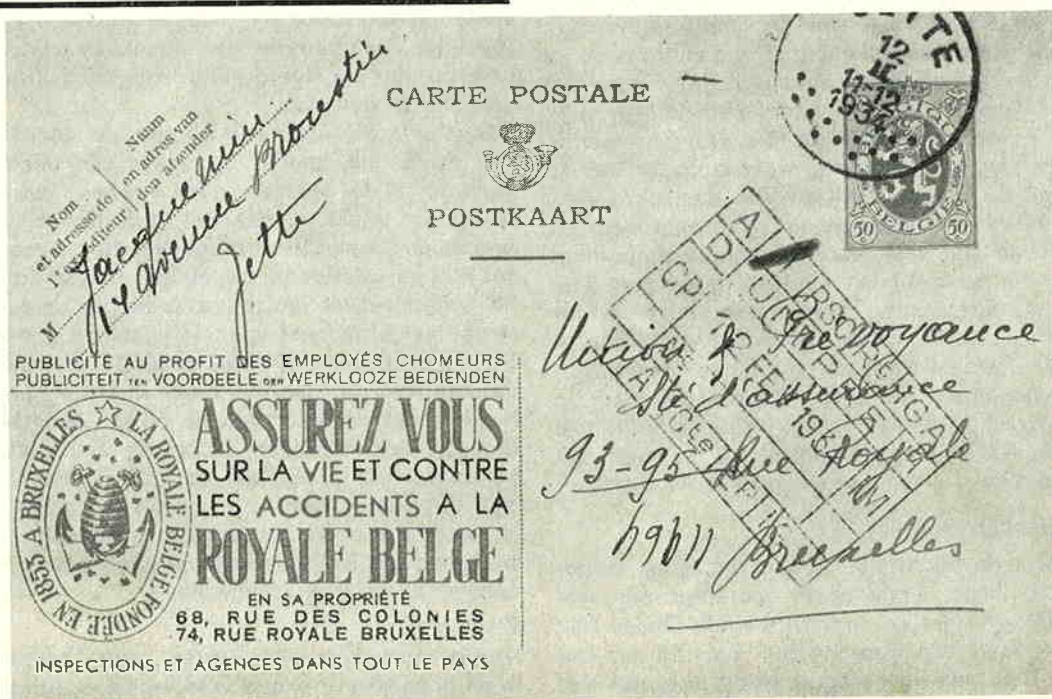 CARTE POSTALE
POSTKAART
Nom
et adresse de
l'expéditeur
Naam
en adres van
den afzender
M Jacquemin
14 Avenue Broustin
Jette
JETTE
12
11-12
1934
BELGIE
50 50
PUBLICITÉ AU PROFIT DES EMPLOYÉS CHOMEURS
PUBLICITEIT TEN VOORDEELE DER WERKLOOZE BEDIENDEN
LA ROYALE BELGE FONDÉE EN 1853 A BRUXELLES
ASSUREZ VOUS
SUR LA VIE ET CONTRE
LES ACCIDENTS A LA
ROYALE BELGE
EN SA PROPRIÉTÉ
68, RUE DES COLONIES
74, RUE ROYALE BRUXELLES
INSPECTIONS ET AGENCES DANS TOUT LE PAYS
Union & Prévoyance
Sté d'assurance
93-95 Rue Royale
Bruxelles